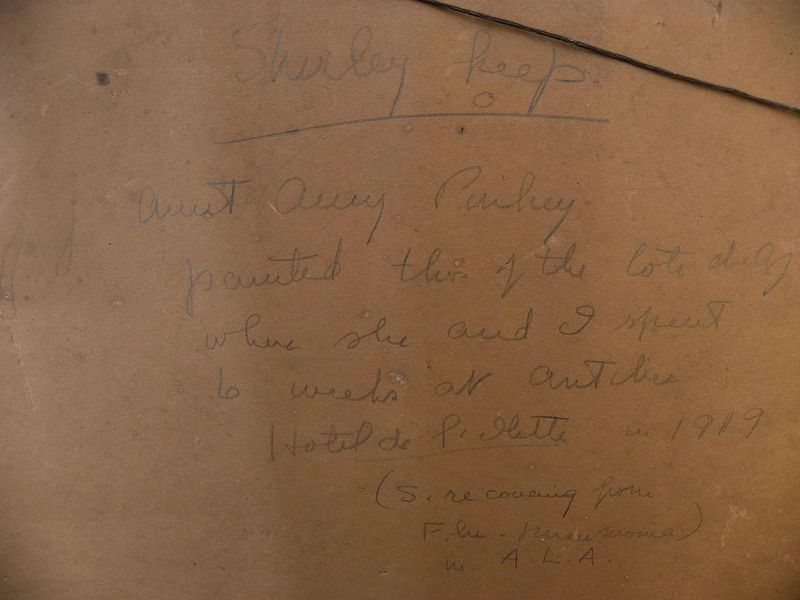 Shirley keep.
Aunt Amy Pinkey
painted this of the Cote d'Az
when she and I spent
6 weeks at Antibes
Hotel de in 1919
(S. recovering from
Flu - Pneumonia)
in A.L.A.